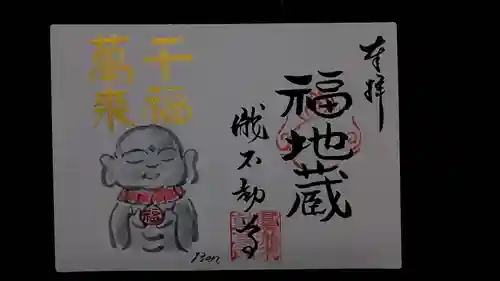 奉拝
福地蔵
䬟不動尊
千福
萬来
福
Ben